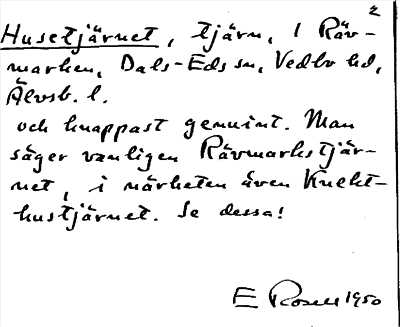 2
Husetjärnet, tjärn, i Räv-
marken, Dals-Eds sn, Vedbo hd,
Älvsb. l.
och knappast genuint. Man
säger vanligen Rävmarkstjär-
net, i närheten även Knekt-
hustjärnet. Se dessa!
E Rosell 1950